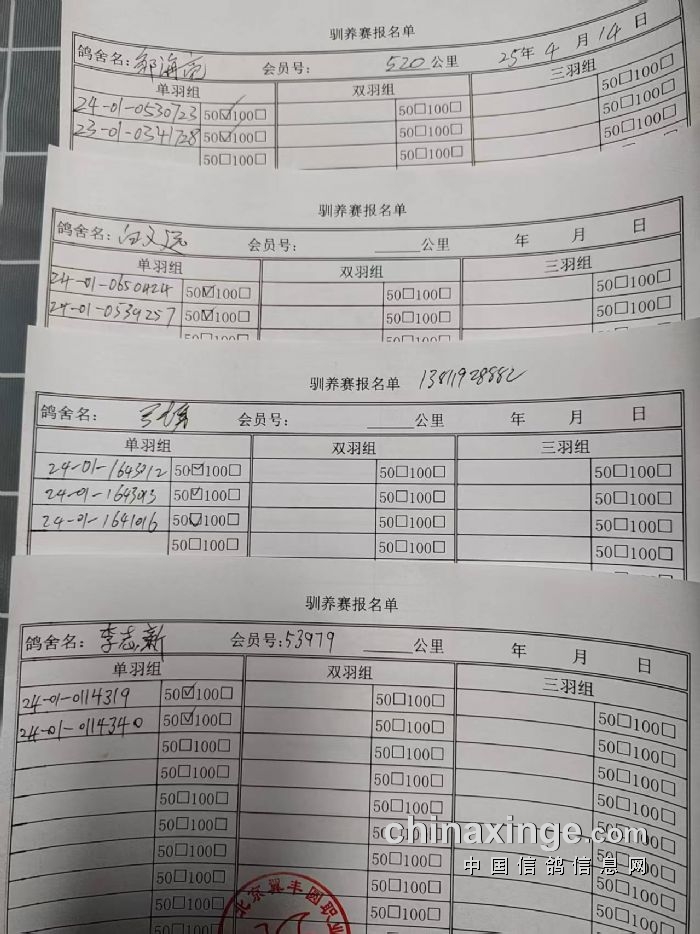 驯养赛报名单
鸽舍名: 邹海亮 会员号: 520公里 25年4月14日
单羽组 双羽组 三羽组
24-01-0530723 50☑100□ 50□100□ 50□100□
23-01-0341728 50☑100□ 50□100□ 50□100□
50□100□ 50□100□ 50□100□
驯养赛报名单
鸽舍名: 会员号: 公里 年 月 日
单羽组 双羽组 三羽组
24-01-0650424 50☑100□ 50□100□ 50□100□
24-01-0539257 50☑100□ 50□100□ 50□100□
驯养赛报名单 13811928882
鸽舍名: 会员号: 公里 年 月 日
单羽组 双羽组 三羽组
24-01-1643912 50☑100□ 50□100□ 50□100□
24-01-164393 50☑100□ 50□100□ 50□100□
24-01-1641016 50☑100□ 50□100□ 50□100□
50□100□ 50□100□ 50□100□
驯养赛报名单
鸽舍名: 李志新 会员号:53979 公里 年 月 日
单羽组 双羽组 三羽组
24-01-0114319 50☑100□ 50□100□ 50□100□
24-01-0114340 50☑100□ 50□100□ 50□100□
50□100□ 50□100□ 50□100□
50□100□ 50□100□ 50□100□
50□100□ 50□100□ 50□100□
50□100□ 50□100□ 50□100□
50□100□ 50□100□ 50□100□
chinaxinge.com
中国信鸽信息网
50□100□ 50□100□ 50□100□
50□100□ 50□100□ 50□100□
50□100□ 50□100□ 50□100□
北京翼丰圆职业